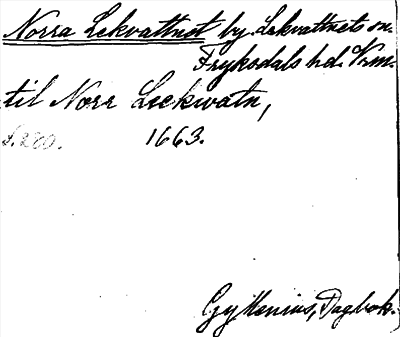 Norra Lekvattnet by. Lekvattnets sn.
Fryksdals hd. Vrm.
til Norr Leekwatn,
s. 280. 1663.
Gyllenius, Dagbok.